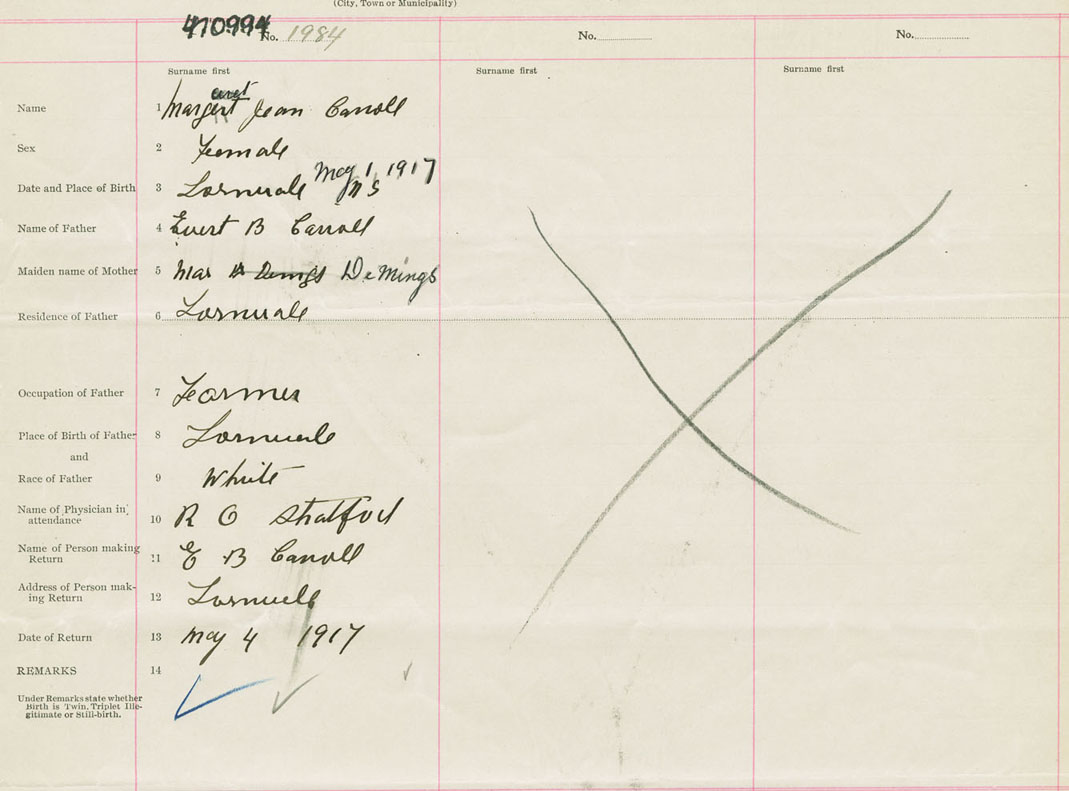 (City, Town or Municipality)
470994
No. 1984 No. No.
Surname first Surname first Surname first
eret
Name 1 Margert Jean Carroll
Sex 2 Female
May 1, 1917
Date and Place of Birth 3 Lornvale N S
Name of Father 4 Evert B Carroll
Maiden name of Mother 5 Mar DeMings
Residence of Father 6 Lornvale
Occupation of Father 7 Farmer
Place of Birth of Father 8 Lornvale
and
Race of Father 9 White
Name of Physician in
attendance 10 R O Stratford
Name of Person making
Return 11 E B Carroll
Address of Person mak-
ing Return 12 Lornvale
Date of Return 13 May 4 1917
REMARKS 14
Under Remarks state whether
Birth is Twin, Triplet Ille-
gitimate or Still-birth.